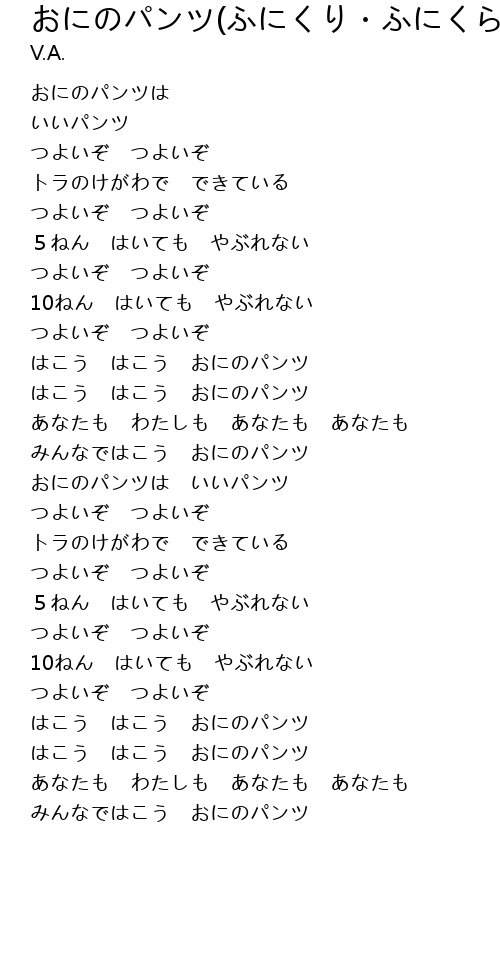 おにのパンツ(ふにくり・ふにくら
V.A.
おにのパンツは
いいパンツ
つよいぞ　つよいぞ
トラのけがわで　できている
つよいぞ　つよいぞ
５ねん　はいても　やぶれない
つよいぞ　つよいぞ
10ねん　はいても　やぶれない
つよいぞ　つよいぞ
はこう　はこう　おにのパンツ
はこう　はこう　おにのパンツ
あなたも　わたしも　あなたも　あなたも
みんなではこう　おにのパンツ
おにのパンツは　いいパンツ
つよいぞ　つよいぞ
トラのけがわで　できている
つよいぞ　つよいぞ
５ねん　はいても　やぶれない
つよいぞ　つよいぞ
10ねん　はいても　やぶれない
つよいぞ　つよいぞ
はこう　はこう　おにのパンツ
はこう　はこう　おにのパンツ
あなたも　わたしも　あなたも　あなたも
みんなではこう　おにのパンツ